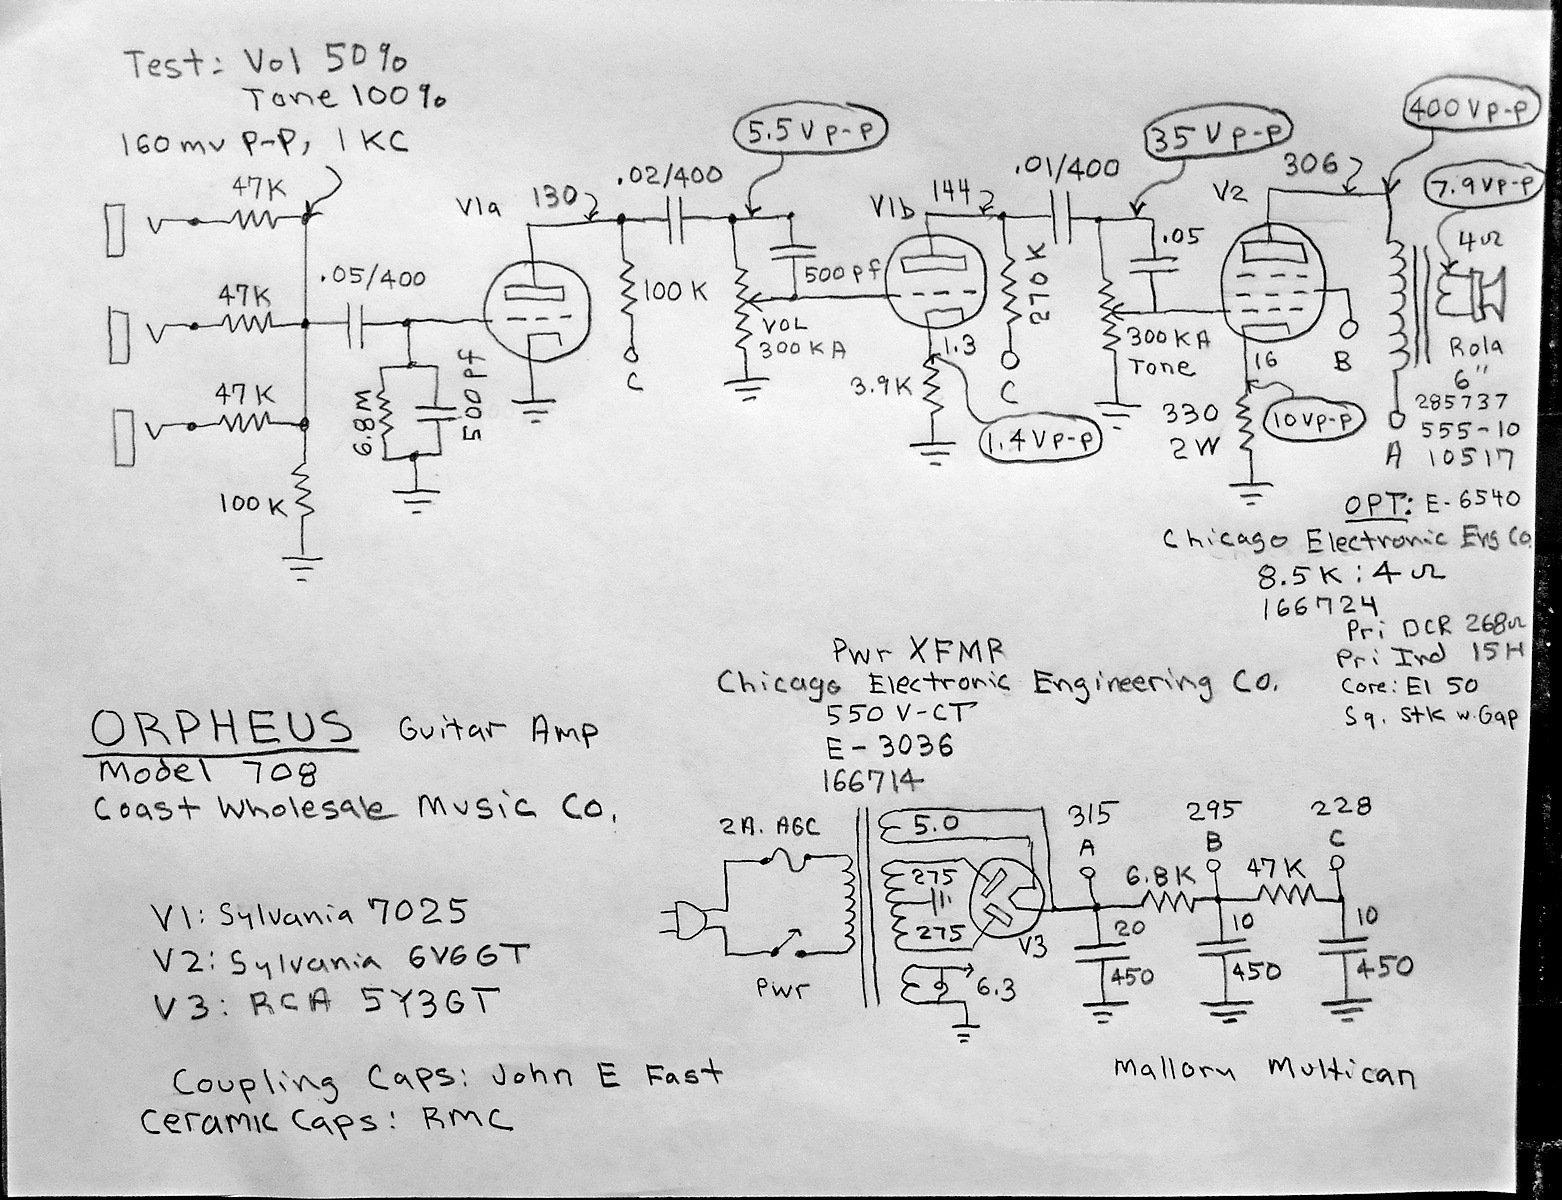 Test: Vol 50%
Tone 100%
160mv P-P, 1KC
47K
47K
47K
100K
.05/400
6.8M
500pf
V1a
130
.02/400
100K
C
5.5Vp-p
500pf
VOL
300KA
V1b
144
1.3
3.9K
1.4Vp-p
270K
C
.01/400
35Vp-p
.05
300KA
Tone
V2
306
16
330
2W
10Vp-p
B
400Vp-p
7.9Vp-p
4Ω
Rola
6"
285737
555-10
10517
A
OPT: E-6540
Chicago Electronic Eng Co.
8.5K:4Ω
166724
Pri DCR 268Ω
Pri Ind 15H
Core: EI 50
Sq. Stk w.Gap
Pwr XFMR
Chicago Electronic Engineering Co.
550V-CT
E-3036
166714
ORPHEUS Guitar Amp
Model 708
Coast Wholesale Music Co.
V1: Sylvania 7025
V2: Sylvania 6V6GT
V3: RCA 5Y3GT
Coupling Caps: John E Fast
Ceramic Caps: RMC
2A. AGC
Pwr
5.0
275
275
6.3
V3
315
A
6.8K
295
B
47K
228
C
20
450
10
450
10
450
Mallory Multican